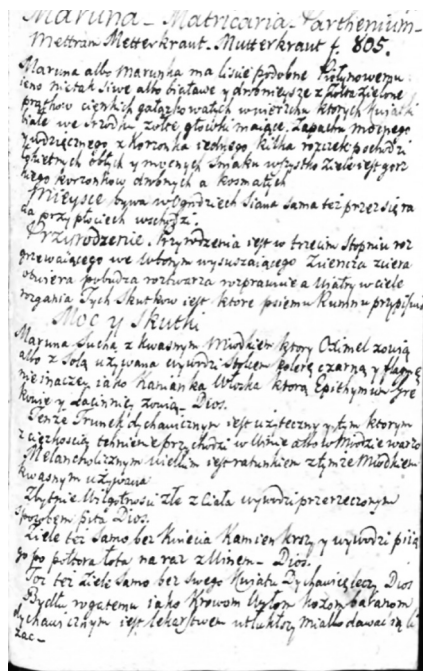 Maruna – Matricaria – Parthenium –
Mettram Metterkraut – Mutterkraut f. 805.
Maruna albo Marunka ma liście podobne Piołynowemu
ieno nie tak siwe albo białawe y drobnieysze z żołta zielone
prątkow cienkich gałązkowatych w wierzchu ktorych kwiatki
białe we srzodku żołte głowki maiące. Zapachu mocnego
y wdzięcznego z korzonka iednego, kilka rozczek pochodzi
okrętnych obłych y mocnych Smaku wszystko ziele iest gorz
kiego korzonkow drobnych a kosmatych
Mieysce bywa w Ogrodziech Siana sama też przez się ra
da przy płociech wschodzi.
Przyrodzenie. Przyrodzenia iest w trzecim Stopniu roz
grzewaiącego we wtorym wysuszaiącego zwiera
otwiera pobudza roztwarza rozprawuie a Wiatry w ciele
rozgania Tych Skutkow iest ktore psiemu Rumnu przypisuią
Moc y Skutki
Maruna Suchą z kwasnym Miodkiem ktory Oximel zowią
albo z Solą używana wywodzi Stolcem Cholerę czarną y flagmę
nie inaczey iako Kanianka Włoska ktorą Epithymum Gre
kowie y Łacinnicy zowią – Dios.
Tenże Trunek dychawicznym iest użyteczny y tym ktorym
z ciężkością tchnienie przychodzi w Winie albo w Miodzie warzo
Melancholicznym wielkim iest ratunkiem z tymże Miodkiem
kwasnym używana
Zbytnie Wilgotności złe z Ciała wywodzi przerzeczonym
sposobem pita Dios.
Ziele też samo bez Kwiecia Kamien kruszy y wywodzi piiąc
go po połtora łota na raz z Winem – Dios.
Toż też ziele samo bez swego Kwiatu Dychawicę leczy Dios
Bydłu rogatemu iako Krowom Wołom Kozom baranom
dychawicznym iest lekarstwem utłukłszy miałko dawać im li
zać –